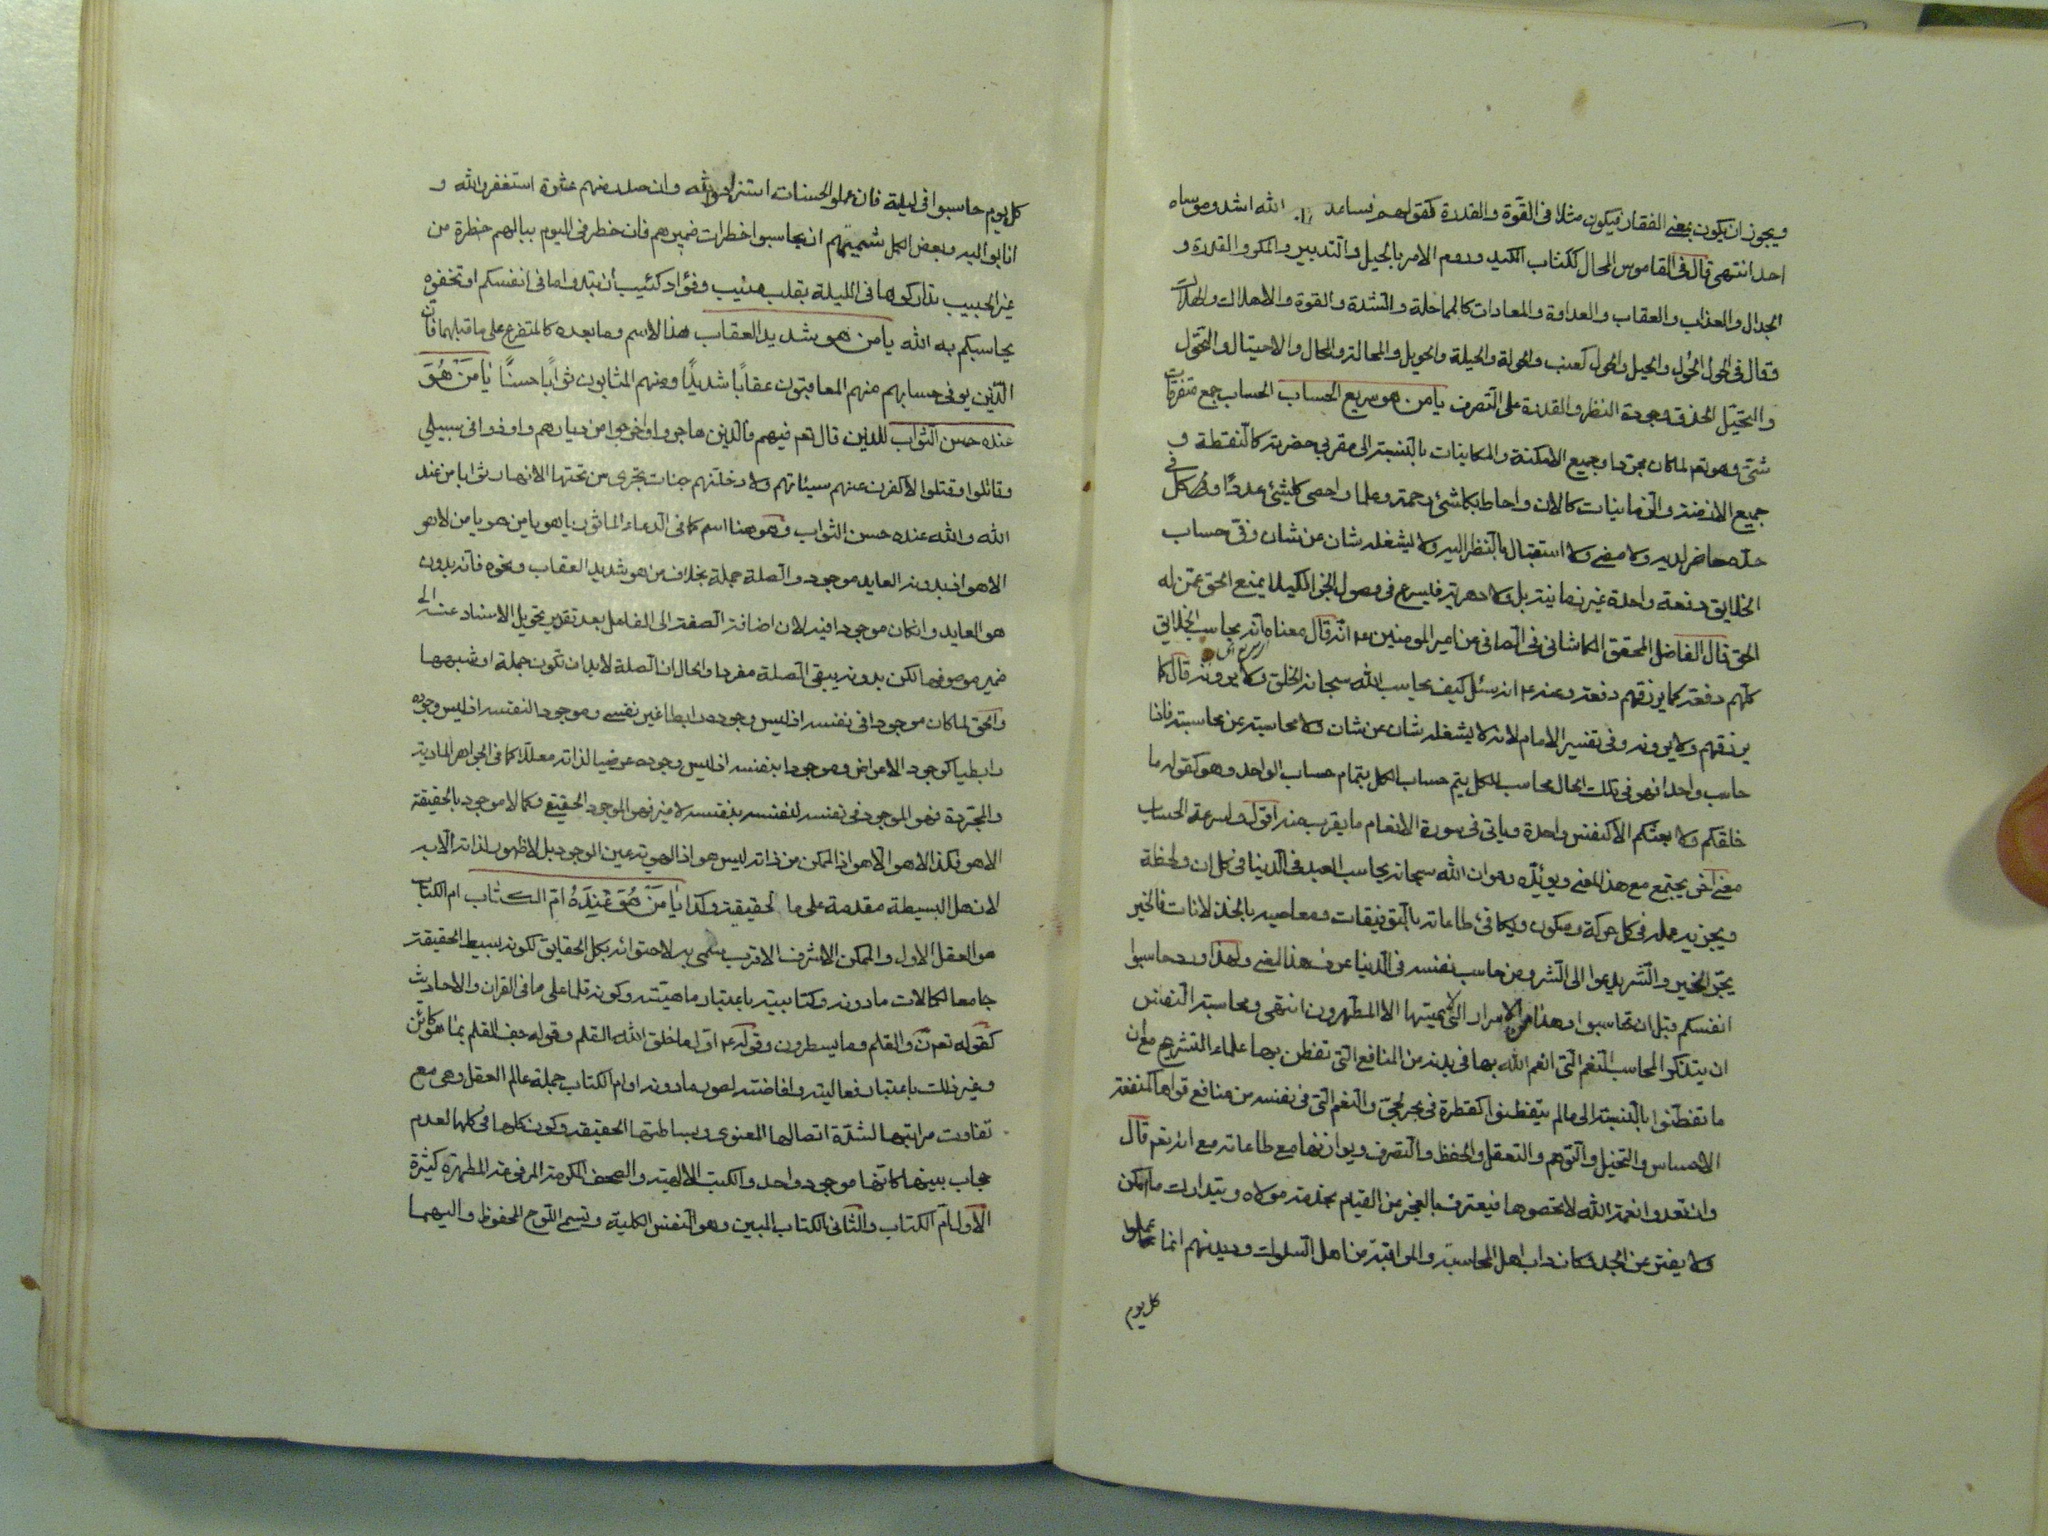 ويجوز ان يكون بمعنى الفقار فيكون مثلا فى القوّة والقدرة كقولهم فساعد الله اشد وموساه
احد انتهى قال فى القاموس المحال ككتاب الكيد وروم الامر بالحيل والتدبير والمكر والقدرة و
الجدال والعذاب والعقاب والعداوة والمعادات كالمماحلة والشدة والقوة والاهلاك والهلاك
وقال فى الحول الحول والحيل والحول كعنب والحولة والحيلة والحويل والمحالة والمحال والاحتيال والتحوّل
والتحيّل الحذق وجودة النظر والقدرة على التصرف يا من هو سريع الحساب الحساب جمع متفرقات
شتى وهو تعالى لما كان مجرّدا وجميع الامكنة والمكانيات بالنسبة الى مقربي حضرته كالنقطة و
جميع الازمنة والزمانيات كالان واحاط بكل شئ رحمة وعلما واحصى كل شئ عددا فالكل فى
حدّه حاضر لديه ولا مضى ولا استقبال بالنظر اليه ولا يشغله شان عن شان وفّى حساب
الخلايق دفعة واحدة غير زمانية بل ولا دهرية فليسرع فى وصول الخير الكيلا يمنع الحق عمّن له
الحق قال الفاضل المحقق الكاشانى فى الصافى عن امير المومنين ع انّه قال معناه انّه يحاسب الخلايق
كلّهم دفعة كما يرزقهم دفعة وعنه ع انه سئل كيف يحاسب الله سبحانه الخلق ولا يرونه قال كما
يرزقهم ولا يرونه وفى تفسير الامام لانه لا يشغله شان عن شان ولا محاسبة عن محاسبة فاذا
حاسب واحدا فهو فى تلك الحال محاسب للكل يتم حساب الكل بتمام حساب الواحد وهو كقوله ما
خلقكم ولا بعثكم الا كنفس واحدة وياتى فى سورة الانعام ما يقرب منه اقول لسرعة الحساب
معنى اخر يجتمع مع هذا المعنى ويؤيّده وهو ان الله سبحانه يحاسب العبد فى الدنيا فى كل ان ولحظة
ويجزيه عمله فى كل حركة وسكون ويكافى طاعاته بالتوفيقات ومعاصيه بالخذلانات فالخير
يجرّ الخير والشر يدعوا الى الشر ومن حاسب نفسه فى الدنيا عرف هذا المعنى ولهذا ورد حاسبوا
انفسكم قبل ان تحاسبوا وهذا من الاسرار التى لا يمسها الا المطهرون انتهى ومحاسبة النفس
ان يتذكر المحاسب النعم التى انعم الله بها فى بدنه من المنافع التى تفطن بها علماء التشريح مع ان
ما تفطّنوا بالنسبة الى ما لم يتفطنوا كقطرة فى بحر لجىّ والنعم التى فى نفسه من منافع قواها كمنفعة
الاحساس والتخيل والتوهم والتعقل والحفظ والتصرف ويوازنها مع طاعاته مع انه تعم قال
وان تعدوا نعمة الله لا تحصوها فيعترف بالعجز عن القيام بخدمة مولاه ويتدارك ما امكن
ولا يفتر عن الجد وكان داب اهل المحاسبة والمراقبة من اهل السلوك وديدنهم انما عملوا
كل يوم
كل يوم حاسبوا فى ليلة فان عملوا الحسنات استزادوا الله وان صدر منهم عثرة استغفروا الله و
انابوا اليه وبعض الكمل شميتهم ان يحاسبوا خطرات ضميرهم فان خطر فى اليوم ببالهم خطرة من
غير الحبيب تداركوها فى الليلة بقلب منيب وفؤاد كئيب ان تبدوا ما فى انفسكم او تخفوه
يحاسبكم به الله يا من هو شديد العقاب هذا الاسم وما بعده كالمتفرع على ما قبلهما فان
الذين يوفى حسابهم منهم المعاقبون عقابًا شديدًا ومنهم المثابون ثوابًا حسنًا يَا مَنْ هُوَ
عنده حسن الثواب للذين قال تعم فيهم فالذين هاجروا واخرجوا من ديارهم واوذوا فى سبيلى
وقاتلوا وقتلوا لاكفرن عنهم سيئاتهم ولادخلنهم جنات تجرى من تحتها الانهار ثوابا من عند
الله والله عنده حسن الثواب وهو هنا اسم كما فى الدعاء الماثور يا هو يا من هو يا من لا هو
الا هو اذ بدونه العايد موجود والصلة جملة بخلاف من هو شديد العقاب ونحوه فانه بدون
هو العايد وان كان موجودا فيه لان اضافة الصفة الى الفاعل بعد تقدير تحويل الاسناد عنه الى
ضمير موصوفها لكن بدونه يبقى الصلة مفردا والحال ان الصلة لابد ان تكون جملة او شبهها
والحق لما كان موجودا فى نفسه اذ ليس وجوده رابطا غير نفسى وموجودا لنفسه اذ ليس وجوده
رابطيا كوجود الاعراض وموجودا بنفسه اذ ليس وجوده عرضيا لذاته معللا كما فى الجواهر المادية
والمجرّدة فهو الموجود فى نفسه لنفسه بنفسه لا غير فهو الموجود الحقيقى وكما لا موجود بالحقيقة
الا هو فكذا لا هو الا هو اذ الممكن من ذاته ليس هو اذ الهوية عين الوجود بل لا ظهور لذاته الا به
لان هل البسيطة مقدمة على ما الحقيقة وكذا يَا مَنْ هُوَ عِنْدَهُ امّ الكتاب ام الكتاب
هو العقل الاول والممكن الاشرف الاقرب يسمى به لاحتوائه بكل الحقايق لكونه بسيط الحقيقة
جامعا لكمالات ما دونه وكتابيته باعتبار ماهيته وكونه قلما على ما فى القران والاحاديث
كقوله تعم نٓ والقلم وما يسطرون وقوله ع اول ما خلق الله القلم وقوله جف القلم بما هو كائن
وغير ذلك باعتبار فعاليته وافاضته لصور ما دونه او ام الكتاب جملة عالم العقل وهى مع
تفاوت مراتبها لشدّة اتصالها المعنوى وبساطتها الحقيقة وكون كلها فى كلها لعدم
حجاب بينها كانها موجود واحد والكتب الالهية والصحف المكرمة المرفوعة المطهرة كثيرة
الاول ام الكتاب والثانى الكتاب المبين وهو النفس الكلية وتسمى اللوح المحفوظ واليهما